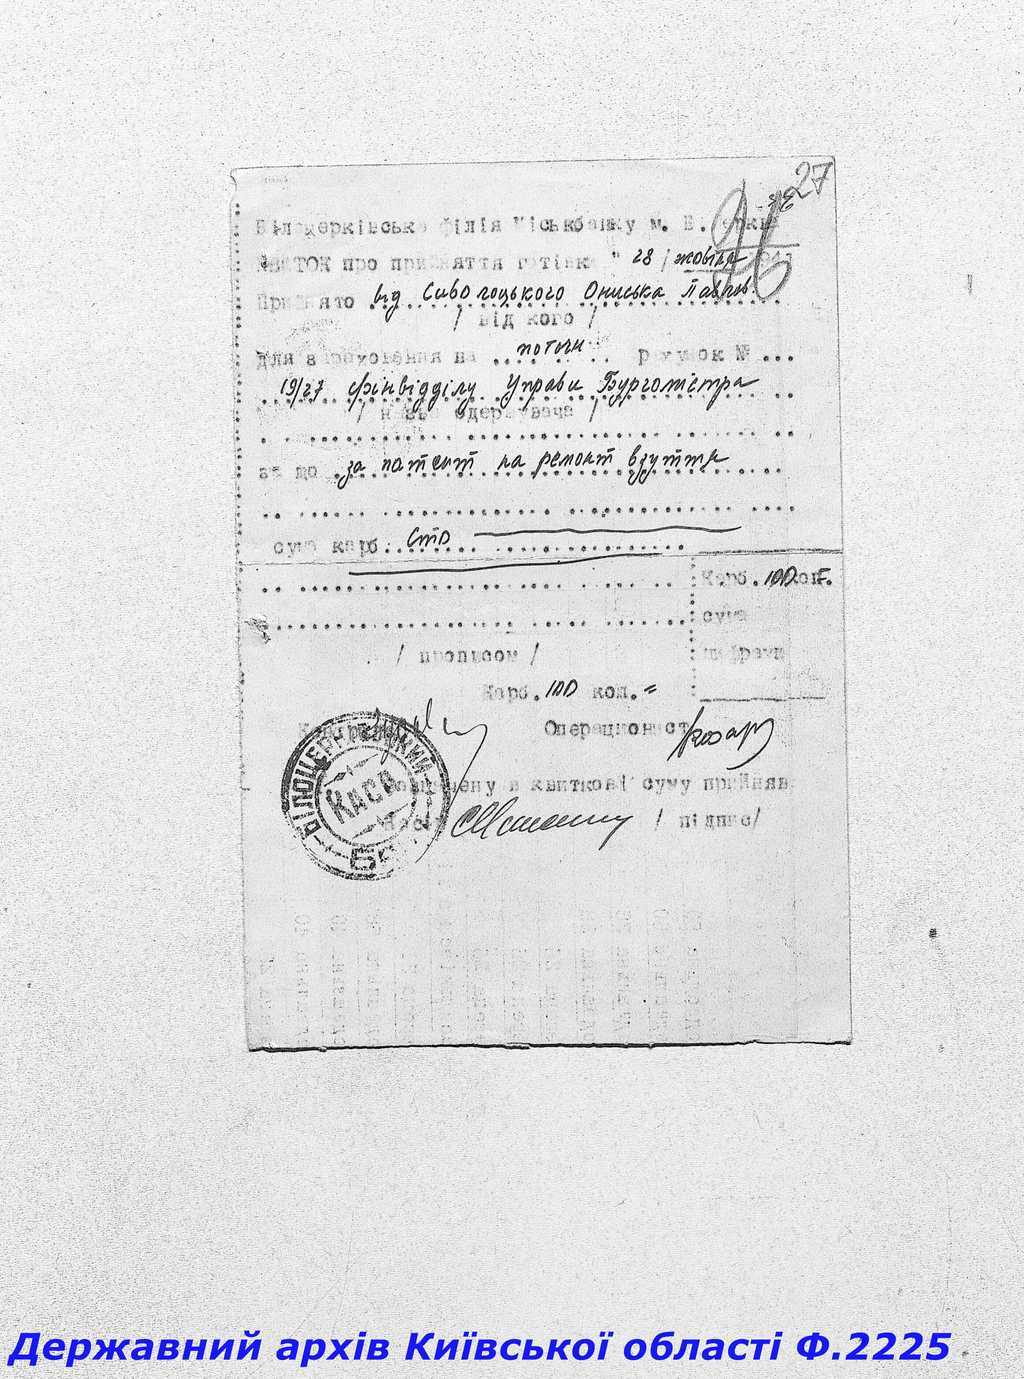 27
Білоцерківська філія Міськбанку м. Б.
КВИТОК про прийняття готівки " 28 / жовтня
Прийнято від Сивологоцького Ониська Павлов
/ від кого /
для зарахування на поточн рахунок №
19/27 фінвідділу Управи Бургомістра
/ назва одержувача /
за що за патент на ремонт взуття
сума карб. сто
Карб. 100 коп.
сума
цифрами
/ прописом /
Карб. 100 коп. =
Операціоніст
БІЛОЦЕРКІВСЬКИЙ
Каса
Зазначену в квиткові суму прийняв
Касир / підпис /
Державний архів Київської області Ф.2225